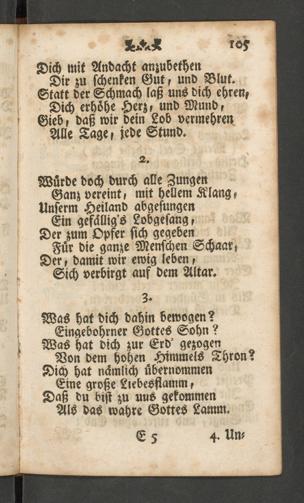 105
Dich mit Andacht anzubethen
Dir zu schenken Gut, und Blut.
Statt der Schmach laß uns dich ehren,
Dich erhöhe Herz, und Mund,
Gieb, daß wir dein Lob vermehren
Alle Tage, jede Stund.
2.
Würde doch durch alle Zungen
Ganz vereint, mit hellem Klang,
Unserm Heiland abgesungen
Ein gefällig's Lobgesang,
Der zum Opfer sich gegeben
Für die ganze Menschen Schaar,
Der, damit wir ewig leben,
Sich verbirgt auf dem Altar.
3.
Was hat dich dahin bewogen?
Eingebohrner Gottes Sohn?
Was hat dich zur Erd' gezogen
Von dem hohen Himmels Thron?
Dich hat nämlich übernommen
Eine große Liebesflamm,
Daß du bist zu uns gekommen
Als das wahre Gottes Lamm.
E 5 4. Un-